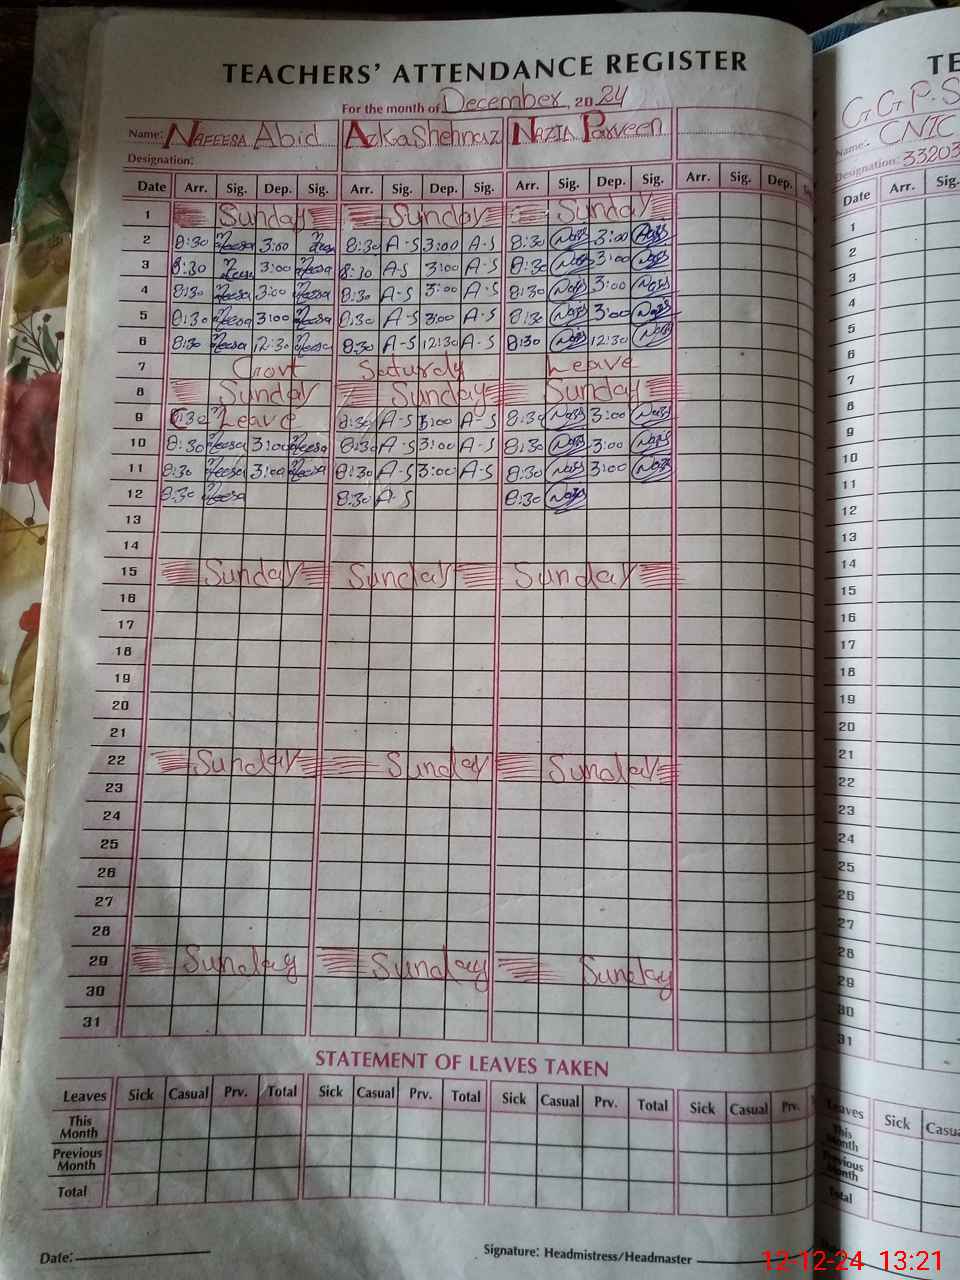 TEACHERS' ATTENDANCE REGISTER
For the month of December, 2024
Name: Nafeesa Abid Azka Shehnaz Nazia Parveen
Designation:
Date Arr. Sig. Dep. Sig. Arr. Sig. Dep. Sig. Arr. Sig. Dep. Sig. Arr. Sig. Dep.
1 Sunday Sunday Sunday
2 8:30 3:00 8:30 A-S 3:00 A-S 8:30 Naz 3:00 Naz
3 8:30 3:00 8:30 A-S 3:00 A-S 8:30 Naz 3:00 Naz
4 8:30 3:00 8:30 A-S 3:00 A-S 8:30 Naz 3:00 Naz
5 8:30 3:00 8:30 A-S 3:00 A-S 8:30 Naz 3:00 Naz
6 8:30 12:30 8:30 A-S 12:30 A-S 8:30 Naz 12:30 Naz
7 Govt Saturdy Leave
8 Sunday Sunday Sunday
9 8:30 Leave 8:30 A-S 3:00 A-S 8:30 Naz 3:00 Naz
10 8:30 3:00 8:30 A-S 3:00 A-S 8:30 Naz 3:00 Naz
11 8:30 3:00 8:30 A-S 3:00 A-S 8:30 Naz 3:00 Naz
12 8:30 8:30 A-S 8:30 Naz
13
14
15 Sunday Sunday Sunday
16
17
18
19
20
21
22 Sunday Sunday Sunday
23
24
25
26
27
28
29 Sunday Sunday Sunday
30
31
STATEMENT OF LEAVES TAKEN
Leaves Sick Casual Prv. Total Sick Casual Prv. Total Sick Casual Prv. Total Sick Casual Prv.
This Month
Previous Month
Total
Date:
Signature: Headmistress/Headmaster
TE
G.G.P.S
Name: CNIC
Designation: 33203
Date Arr. Sig.
1
2
3
4
5
6
7
8
9
10
11
12
13
14
15
16
17
18
19
20
21
22
23
24
25
26
27
28
29
30
31
Leaves Sick
This Month
Previous Month
Total
12-12-24 13:21